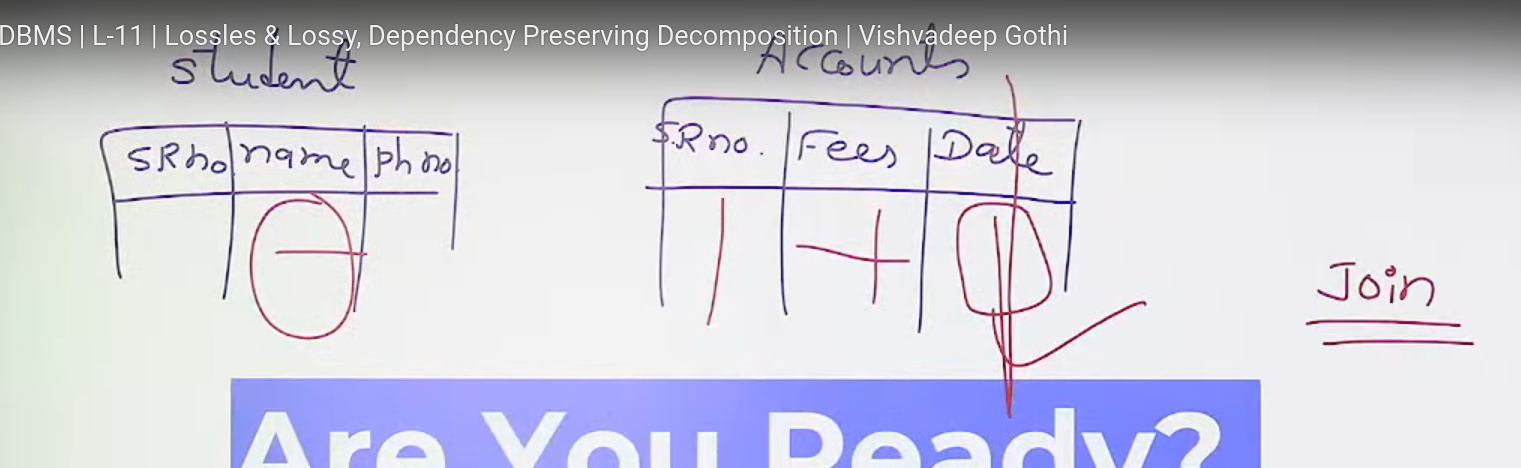 DBMS | L-11 | Lossles & Lossy, Dependency Preserving Decomposition | Vishvadeep Gothi
Student
Accounts
SRno name Phno
S.Rno. Fees Date
Join
Are You Ready?